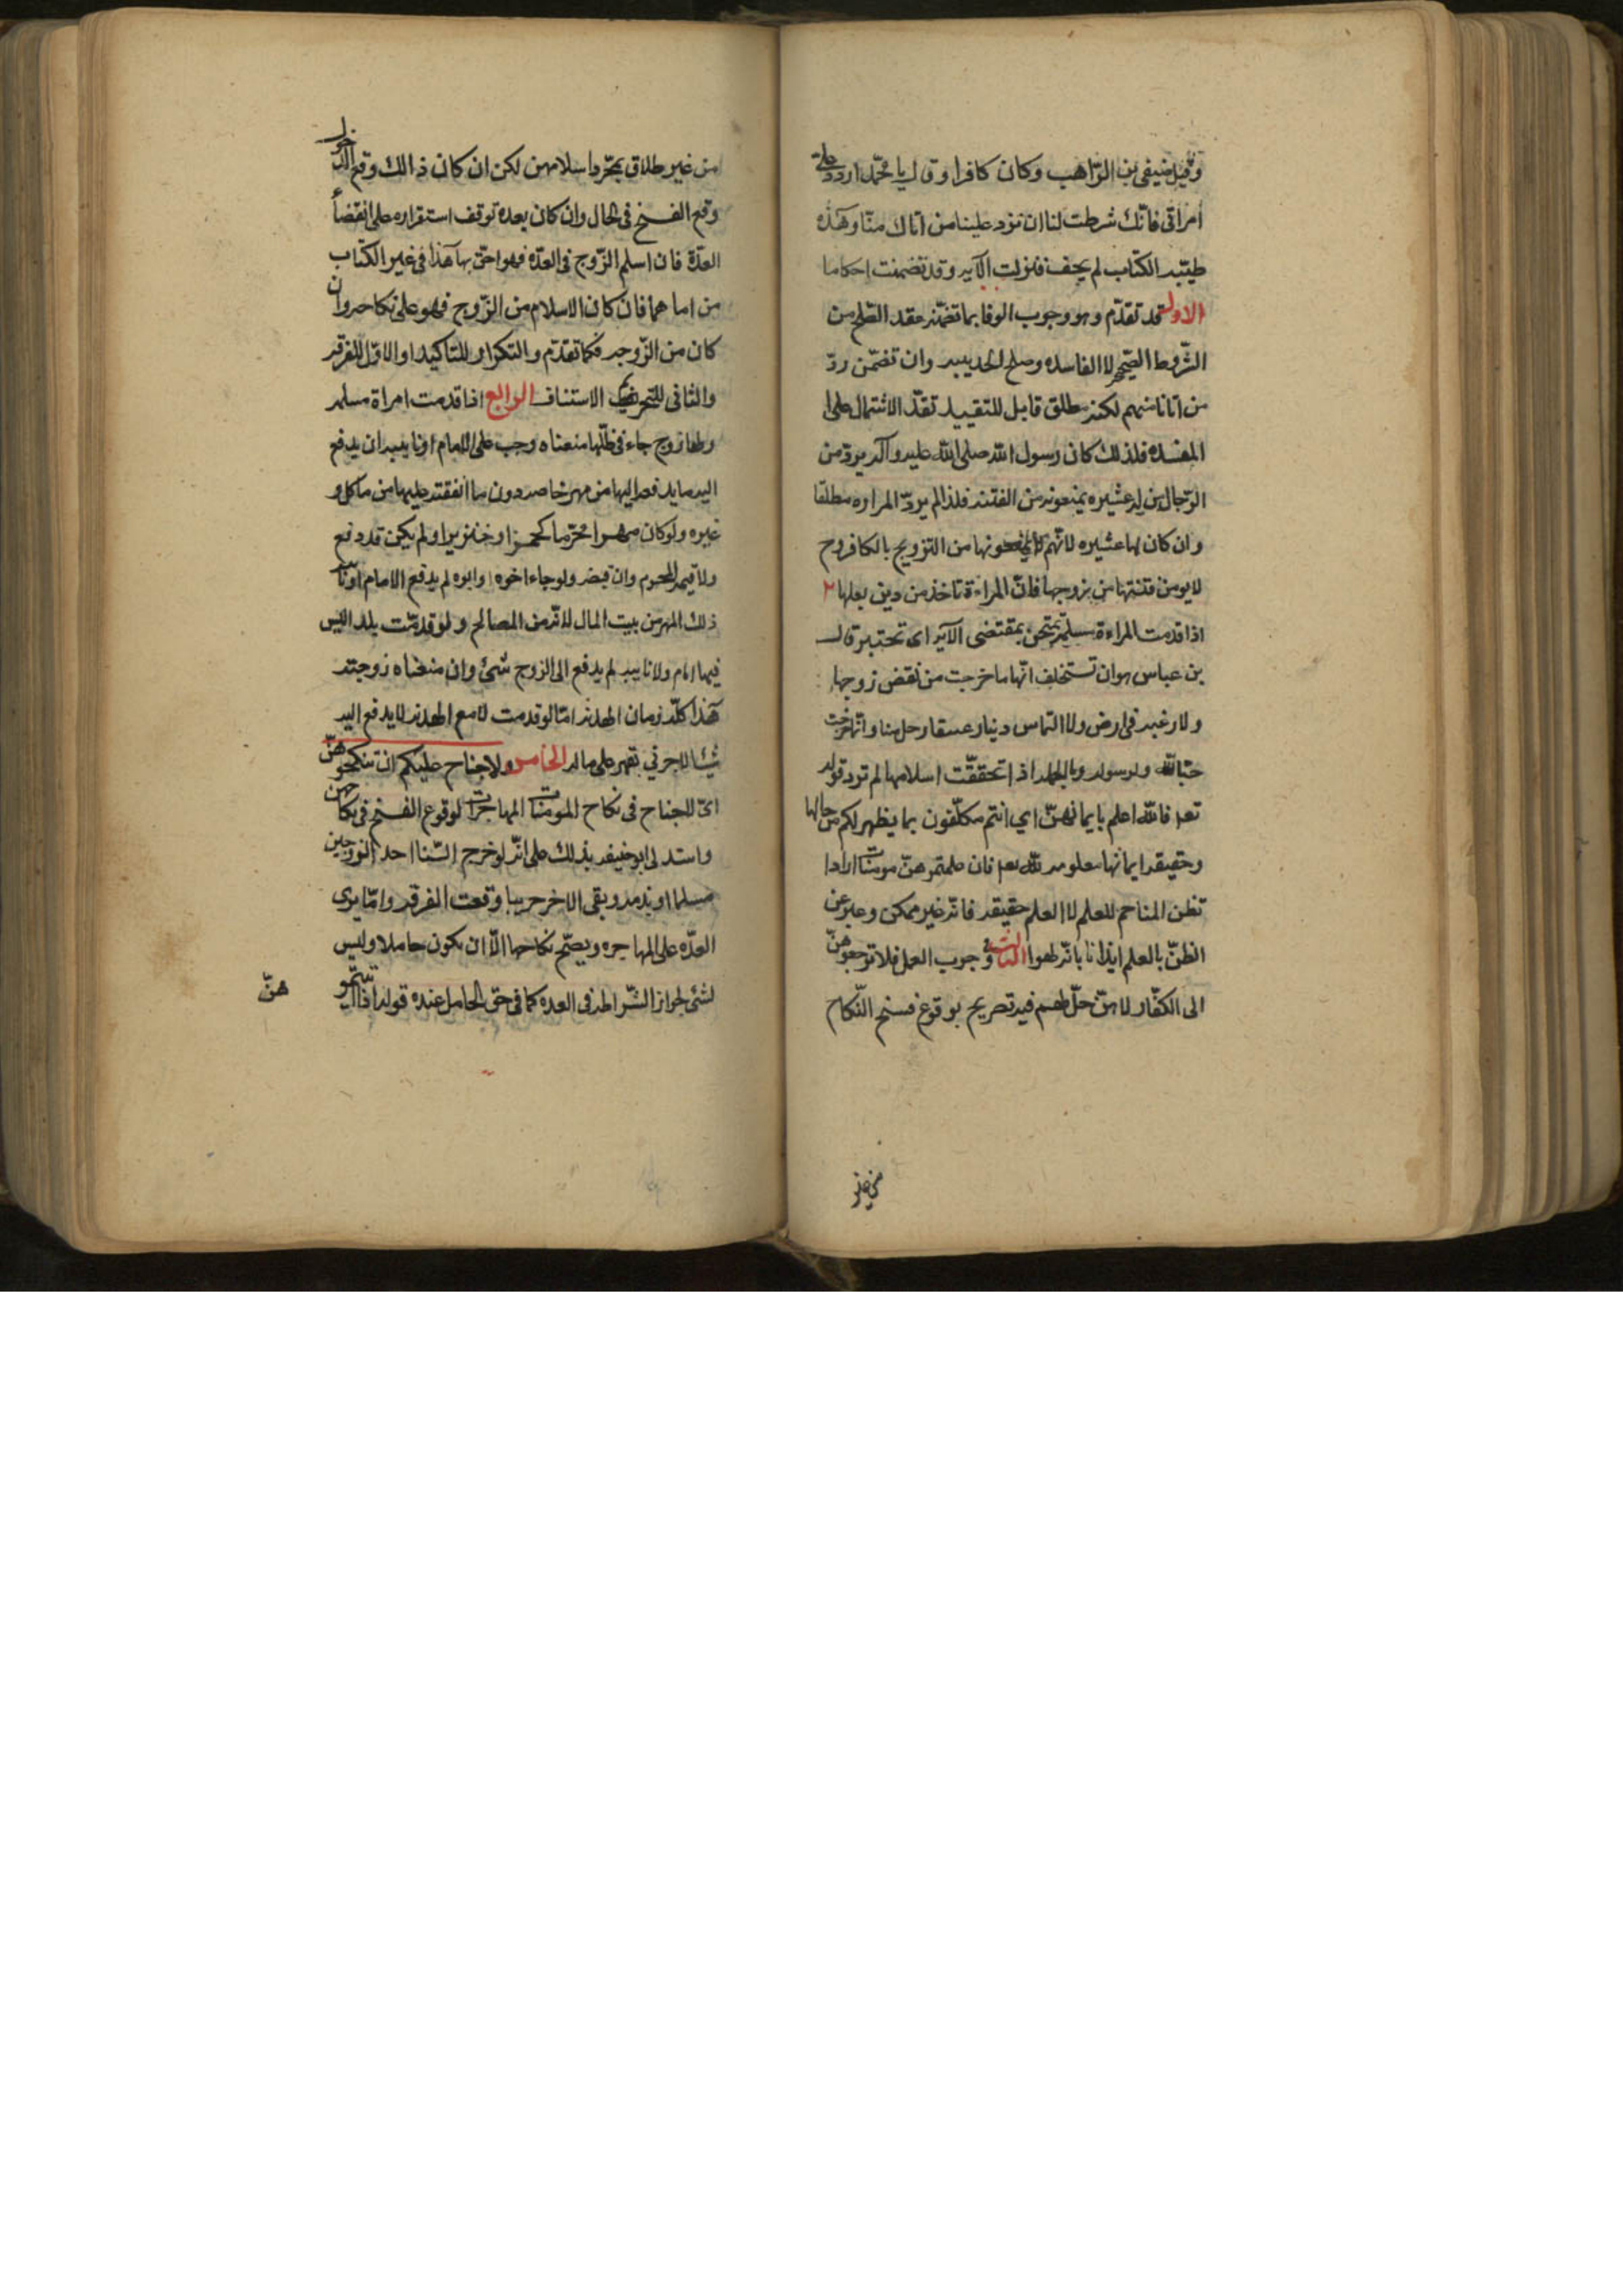 وقيل صيفى بن الرّاهب وكان كافرا وقال يا محمّد اردد علىّ
امراتى فانّك شرطت لنا ان تودّ علينا من اتاك منّا وهذه
طيّبه الكتاب لم يجف فنزلت الآيه وقد تضمنت احكاما
الاول قد تقدّم وهو وجوب الوفا بما تضمّنه عقد الصّلح من
الشّروط الصّحيحه لا الفاسده وصلح الحديبيه وان تضمّن ردّ
من اتانا منهم لكنه مطلق قابل للتقييد تقدّ الاشتمال على
المفسده فلذلك كان رسول الله صلى الله عليه وآله يردّ من
الرّجال من له عشيره يمنعونه من الفتنه فلذا لم يردّ المراه مطلقا
وان كان لها عشيره لانّهم لا يمنعونها من التزويج بالكافر وح
لا يومن فتنتها من زوجها فانّ المراءة تاخذ من دين بعلها ٢
اذا قدمت المراءة مسلمة تمتحن بمقتضى الآيه اى تختبر قال
بن عباس هو ان تستخلف انّها ما خرجت من نقض زوجها
ولا رغبه فى ارض ولا التماس دينا وعسقا رجل منا وانّما خرجت
حبّا لله ولرسوله وبالجمله اذا تحققّت اسلامها لم تود قوله
تعه فالله اعلم بايمانهنّ اي انتم مكلّفون بما يظهر لكم من حالها
وحقيقه ايمانها معلومه لله تعه فان علمتموهنّ مومنات اراد ا
تظن المتاخم للعلم لا العلم حقيقه فانّه غير ممكن وعبر عن
الظنّ بالعلم ايذانا بانّه لهوا الثالث فى وجوب العمل فلا ترجعوهنّ
الى الكفّار لا هنّ حلّ لهم فيه تصريح بوقوع فسخ النّكاح
من غير طلاق بمجّرد اسلامهن لكن ان كان ذالك وقع الدخول
وقع الفسخ فى الحال وان كان بعده توقف استقراره على انقضأ
العدّة فان اسلم الزّوج فى العدّه فهو احقّ بها هذا فى غير الكتاب
من اما هما فان كان الاسلام من الزّوج فهو على نكاحه وان
كان من الزّوجه فكما تقدّم والتكرار للتاكيد او الاوّل للفرقه
والثانى للتحريم الاستناف الرابع اذا قدمت امراة مسلمه
ولها زوج جاء فى طلبها منعناه وجب على الامام او نايبه ان يدفع
اليه ما يدفعه اليها من مهر خاصه دون ما انفقته عليها من ماكل و
غيره ولو كان مهرا محرّما كخمر او خنزير او لم يكن قد دفع
ولا قيمه المحرم وان قبضه ولو جاء اخوه او ابوه لم يدفع الامام او نائب
ذلك المهر من بيت المال لانّه من المصالح ولو قدمّت بلد اليس
فيها امام ولا نايبه لم يدفع الى الزوج شئ وان منعناه زوجته
هذا كلّه زمان الهدنه امّا لو قدمت لا مع الهدنه لا يدفع اليه
شيئا لاحربي تقهر على ماله الخامس ولا جناح عليكم ان تنكحوهنّ
اى لا جناح فى نكاح المومنات المهاجرات لوقوع الفسخ فى نكاحهن
واستدل ابو حنيفه بذلك على انّه لو خرج الينا احد الزوجين
مسلما او بذمه وبقى الاخر حربيا وقعت الفرقه وامّا يرى
العدّه على المهاجره ويصّح نكاحها الاّ ان يكون حاملا وليس
لشئ لجواز الشّراط فى العده كما فى حق الحامل عنده قوله اذا اتيتمو
هنّ